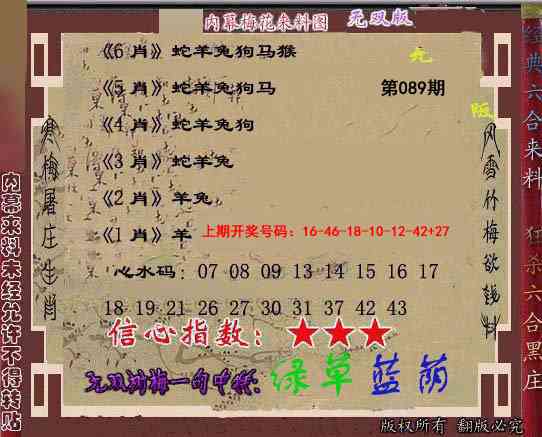 内幕梅花来料图 无双版
《6 肖》蛇羊兔狗马猴
《5 肖》蛇羊兔狗马 第089期
《4 肖》蛇羊兔狗
《3 肖》蛇羊兔
《2 肖》羊兔
《1 肖》羊 上期开奖号码：16-46-18-10-12-42+27
心水码： 07 08 09 13 14 15 16 17
18 19 21 26 27 30 31 37 42 43
信心指数：★★★
无双剑梅一句中特：绿草蓝荫
版权所有 翻版必究
内幕来料未经允许不得转贴
寒梅屠庄生肖
风雪竹梅欲钱料
无
版
经典六合来料 狂杀六合黑庄